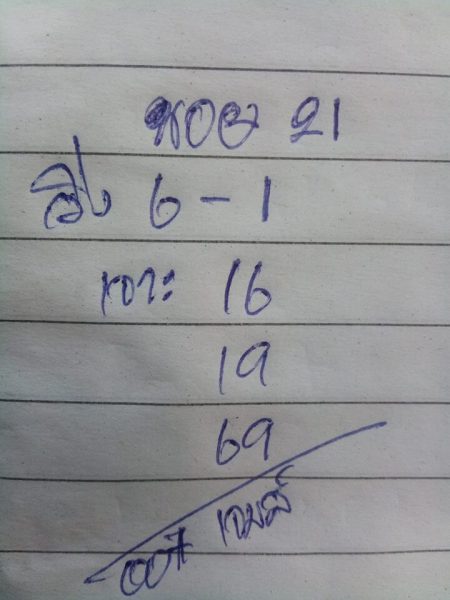 หวย 21
วิ่ง 6 - 1
เจาะ 16
19
69
007 เจมส์